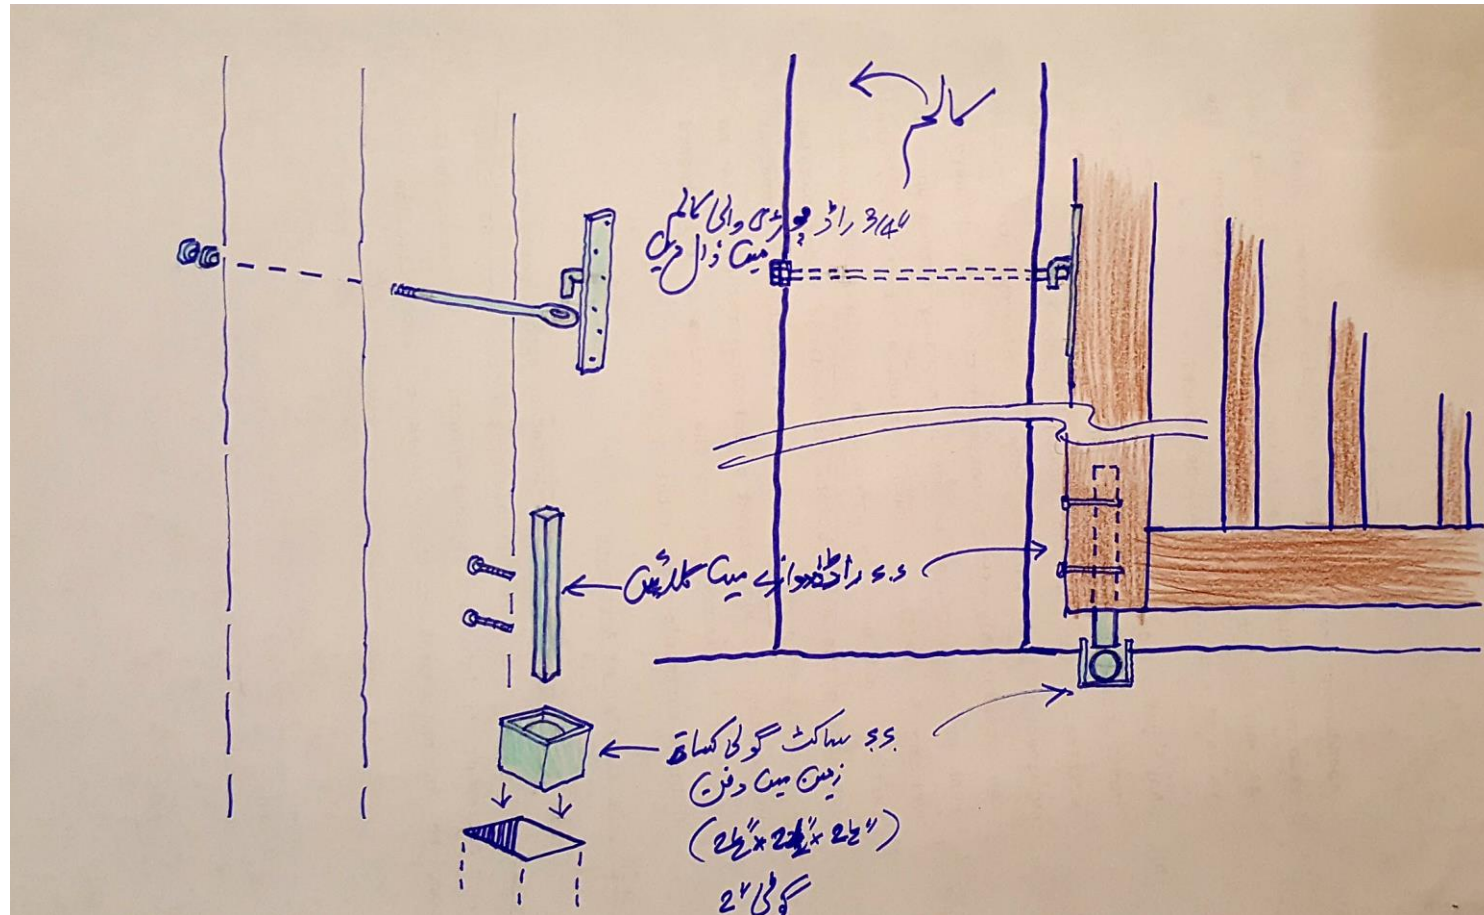 کالم
3/4" راڈ چوڑی والی کالم
میں ڈال دیں
s.s راڈ دروازے میں لگائیں
s.s ساکٹ گولی کساتھ
زمین میں دفن
(2½"x2½"x2½")
گولی 2"